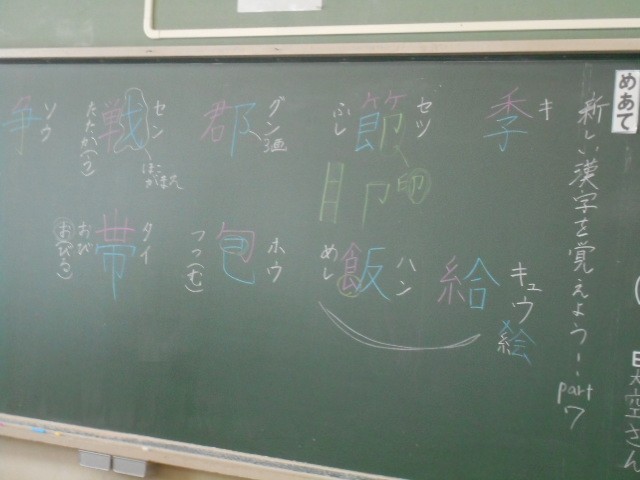 めあて
新しい漢字を覚えよう！part7
キ
季
セツ
節
ふし
印
グン
郡
セン
戦
たたか(う)
ほこ
がまえ
ソウ
争
キュウ
給
絵
ハン
飯
めし
ホウ
包
つつ(む)
タイ
帯
おび
お(びる)
空さん